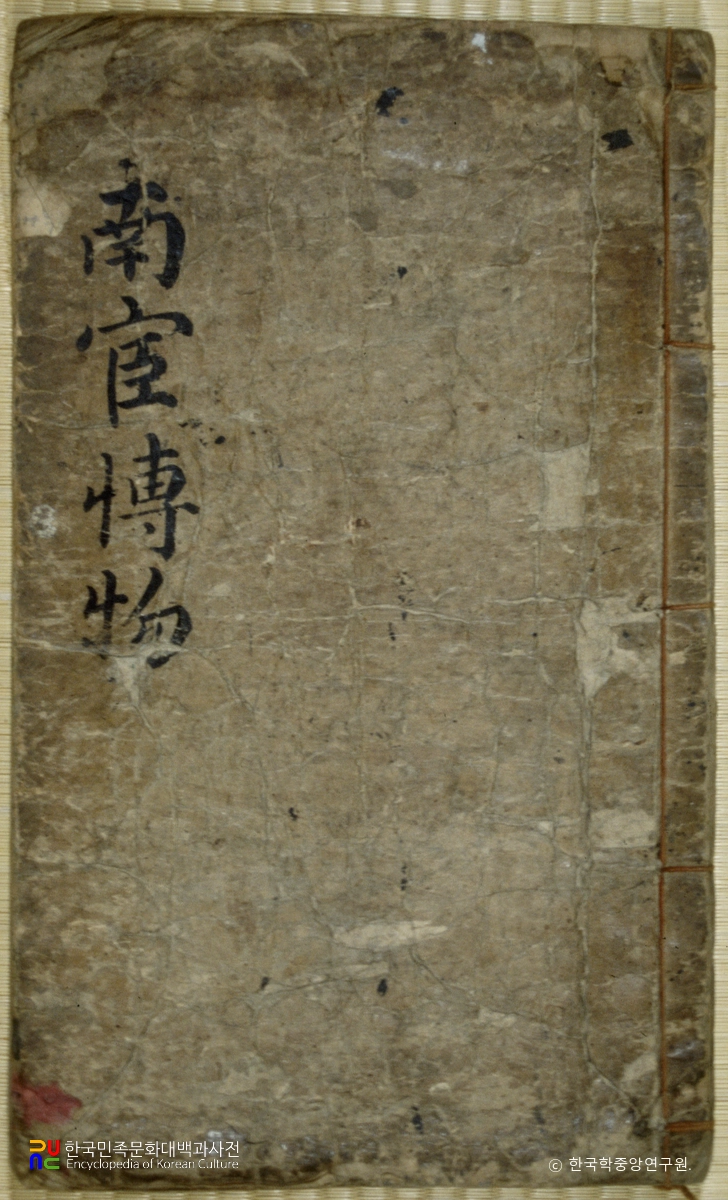 南宦博物
한국민족문화대백과사전
Encyclopedia of Korean Culture
ⓒ 한국학중앙연구원.